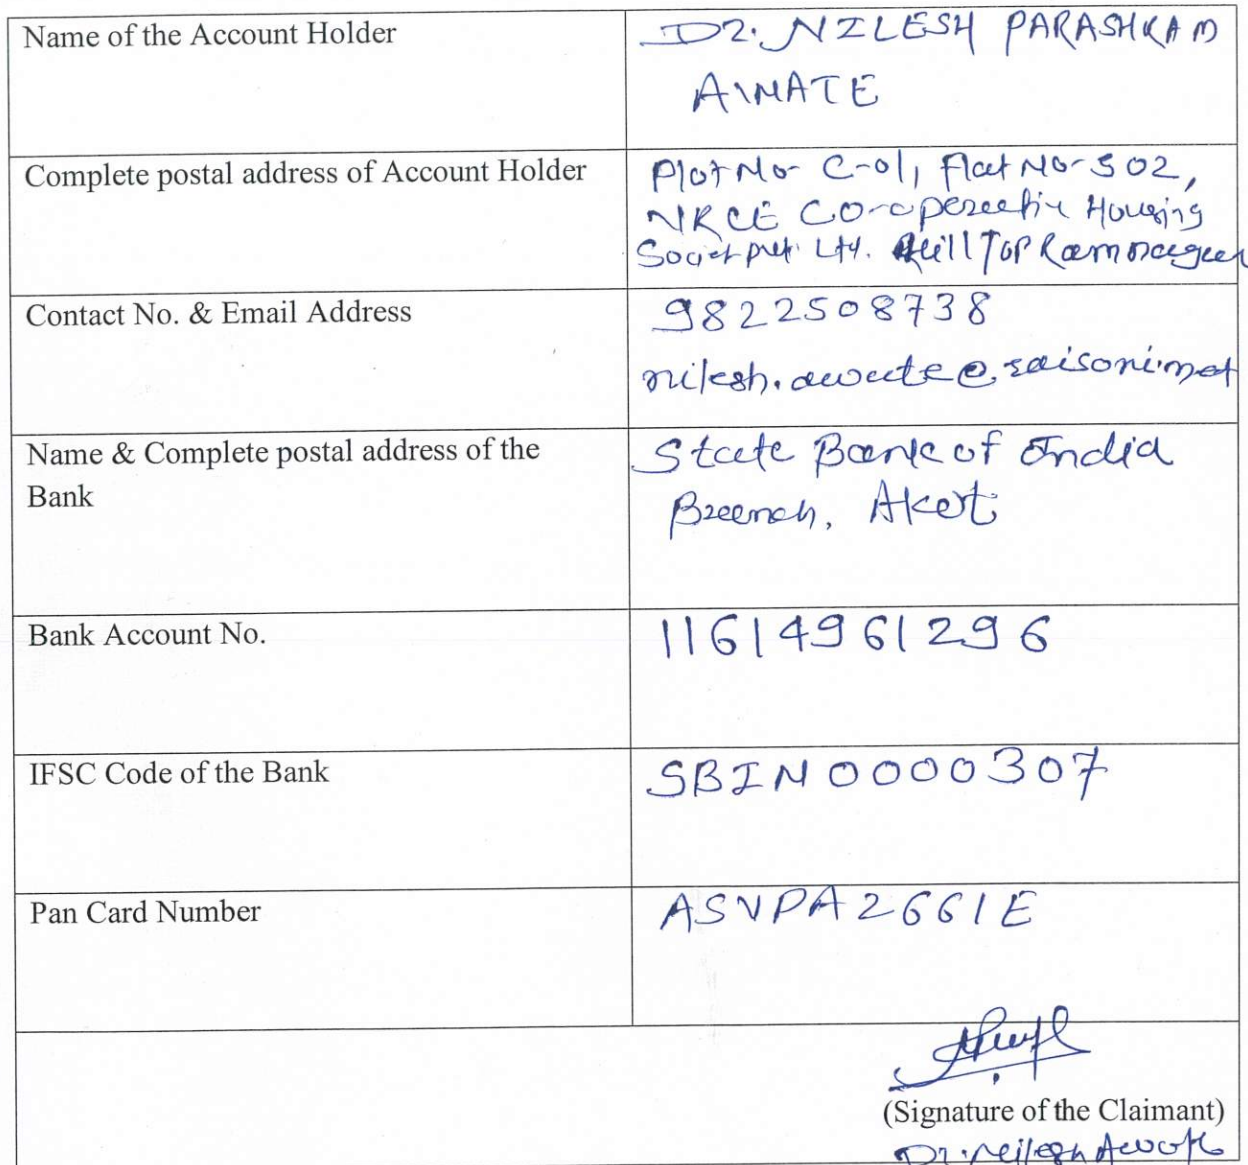 Name of the Account Holder
Dr. NILESH PARASHRAM
AWATE
Complete postal address of Account Holder
Plot No- C-01, Flat No-502,
NRCE CO-operative Housing
Ltd. Hill Top Ramnagar
Contact No. & Email Address
9822508738
nilesh.awate@raisoni.net
Name & Complete postal address of the
Bank
State Bank of India
Branch, Akot
Bank Account No.
11614961296
IFSC Code of the Bank
SBIN0000307
Pan Card Number
ASVPA2661E
(Signature of the Claimant)
Dr. Nilesh Awate